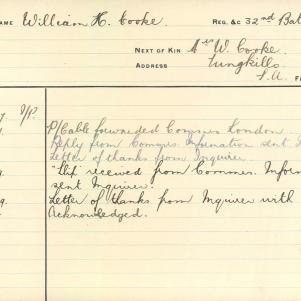 NAME William H. Cooke. REG. &C 32nd Bat
NEXT OF KIN W. Cooke.
ADDRESS Tungkillo.
S.A.
P/Cable forwarded Commrs London
Reply from Commrs. Information sent
Letter of thanks from Inquirer
"Slip" received from Commrs. Inform
sent Inquirer.
Letter of thanks from Inquirer with
Acknowledged.